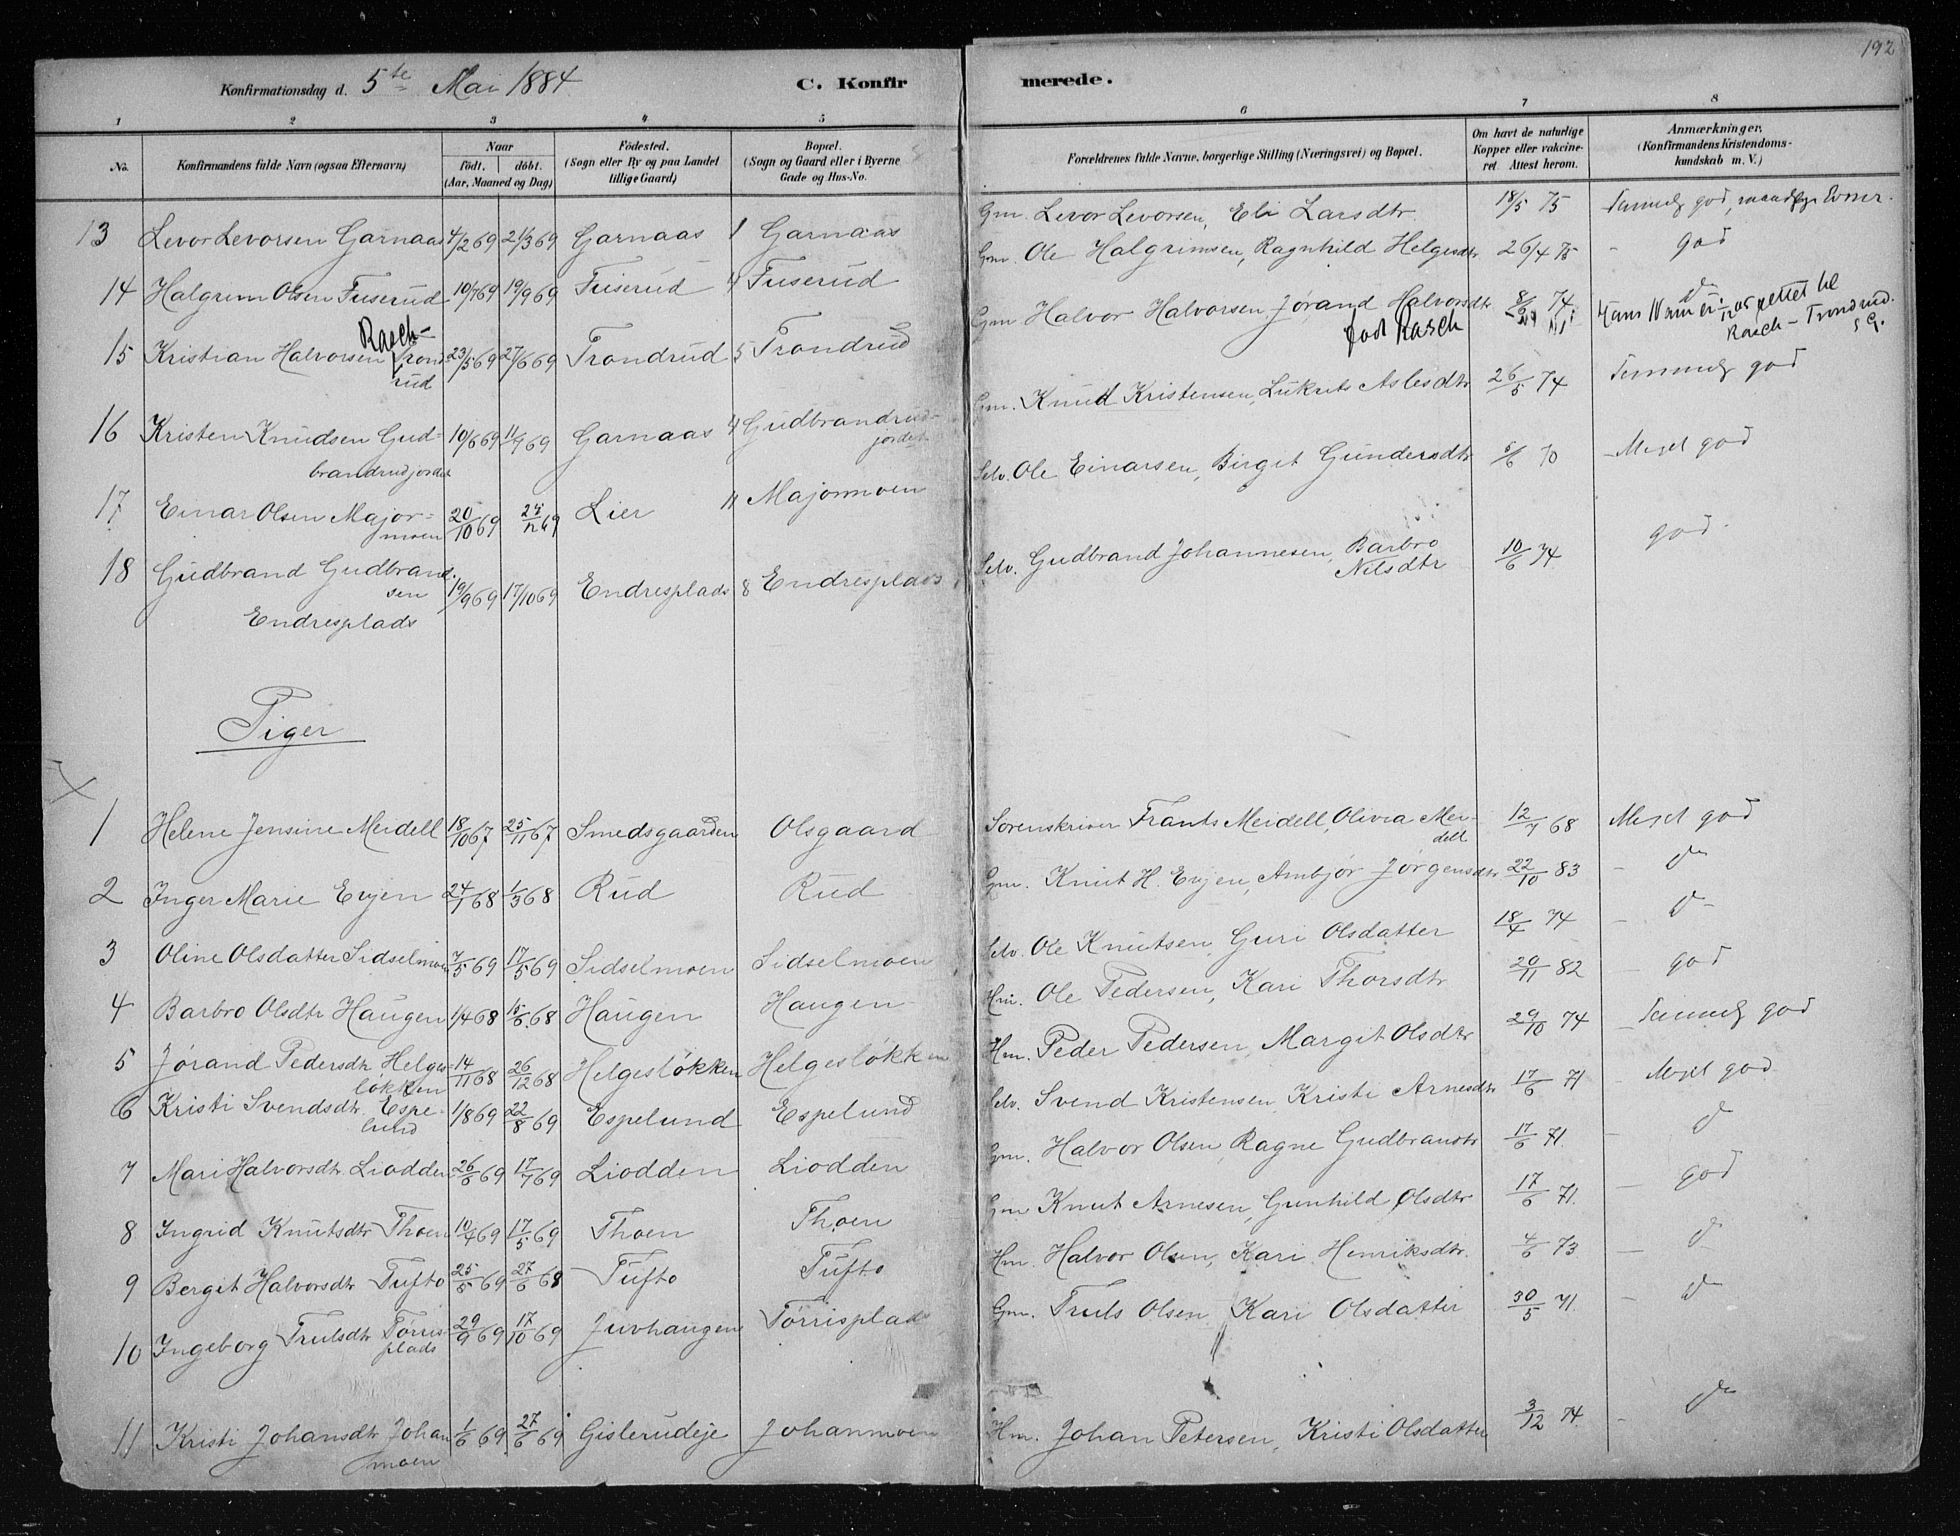 192
Konfirmationsdag d. 5te Mai 1884. C. Konfirmerede.
1 2 3 4 5 6 7 8
No. Konfirmandens fulde Navn (ogsaa Efternavn) Naar født. døbt. (Aar, Maaned og Dag) Fødested. (Sogn eller By og paa Landet tillige Gaard) Bopæl. (Sogn og Gaard eller i Byerne Gade og Hus-No. Forældrenes fulde Navne, borgerlige Stilling (Næringsvei) og Bopæl. Om havt de naturlige Kopper eller vakcineret Attest herom. Anmærkninger. (Konfirmandens Kristendomskundskab m. V.)
13 Levor Levorsen Garnaas 4/2 69 21/3 69 Garnaas 1 Garnaas Gm. Levor Levorsen, Eli Larsdtr. 18/5 75 Temmelig god, Evner.
14 Halgrim Olsen Fuserud 10/7 69 19/9 69 Fuserud 4 Fuserud Gm. Ole Halgrimsen, Ragnhild Helgesdtr 26/4 75 - god
15 Kristian Halvorsen Rasch-Trondrud 23/5 69 27/6 69 Trondrud 5 Trondrud Gm Halvor Halvorsen, Jørand Halvorsdtr født Rasch 8/6 74 Hans Navn er rettet til Rasch-Trondrud. S G.
16 Kristen Knudsen Gudbrandrudjordet 10/6 69 11/9 69 Garnaas 4 Gudbrandrudjordet Gm. Knud Kristensen, Lukrets Aslesdtr 26/5 74 Temmelig god
17 Einar Olsen Majormoen 20/10 69 27/12 69 Lier 11 Majormoen Selv. Ole Einarsen, Birgit Gundersdtr 5/6 70 - Meget god
18 Gudbrand Gudbrandsen Endresplads 19/9 69 17/10 69 Endresplads 8 Endresplads Selv. Gudbrand Johannesen, Barbro Nilsdtr 10/6 74 god
Piger
1 Helene Jensine Meidell 18/10 67 25/11 67 Smedsgaarden Olsgaard Sorenskriver Frants Meidell, Olivia Meidell 12/7 68 Meget god
2 Inger Marie Evjen 24/1 68 1/3 68 Rud Rud Gm. Knut H. Evjen, Ambjør Jørgensdtr 22/10 83 - do
3 Oline Olsdatter Sidselmoen 7/5 69 17/5 69 Sidselmoen Sidselmoen Selv. Ole Knutsen, Guri Olsdatter 18/4 74 - do
4 Barbro Olsdtr Haugen 1/4 68 15/6 68 Haugen Haugen Hm. Ole Pedersen, Kari Thorsdtr 20/11 82 - god
5 Jørand Pedersdtr Helgesløkken 14/11 68 26/12 68 Helgesløkken Helgesløkken Hm. Peder Pedersen, Margit Olsdtr 29/10 74 - Temmelig god
6 Kristi Svendsdtr. Espelund 1/8 69 22/8 69 Espelund Espelund Selv. Svend Kristensen, Kristi Arnesdtr 17/6 71 - Meget god
7 Mari Halvorsdtr Liodden 26/6 69 17/7 69 Liodden Liodden Gm. Halvor Olsen, Ragne Gudbrandsdtr 17/6 71. - do
8 Ingrid Knutsdtr Thoen 10/4 69 17/5 69 Thoen Thoen Gm Knut Arnesen, Gunhild Olsdtr 17/6 71. - god
9 Bergit Halvorsdtr Tufto 25/5 69 27/6 68 Tufto Tufto Hm. Halvor Olsen, Kari Henriksdtr. 4/6 73 - do
10 Ingeborg Trulsdtr Tørrisplads 29/9 69 17/10 69 Juvhaugen Tørrisplads Gm. Truls Olsen Kari Olsdatter 30/5 71. - do
11 Kristi Johansdtr Johanmoen 1/6 69 27/6 69 Gislerudeje Johanmoen Hm. Johan Petersen, Kristi Olsdatter 3/12 74. - do